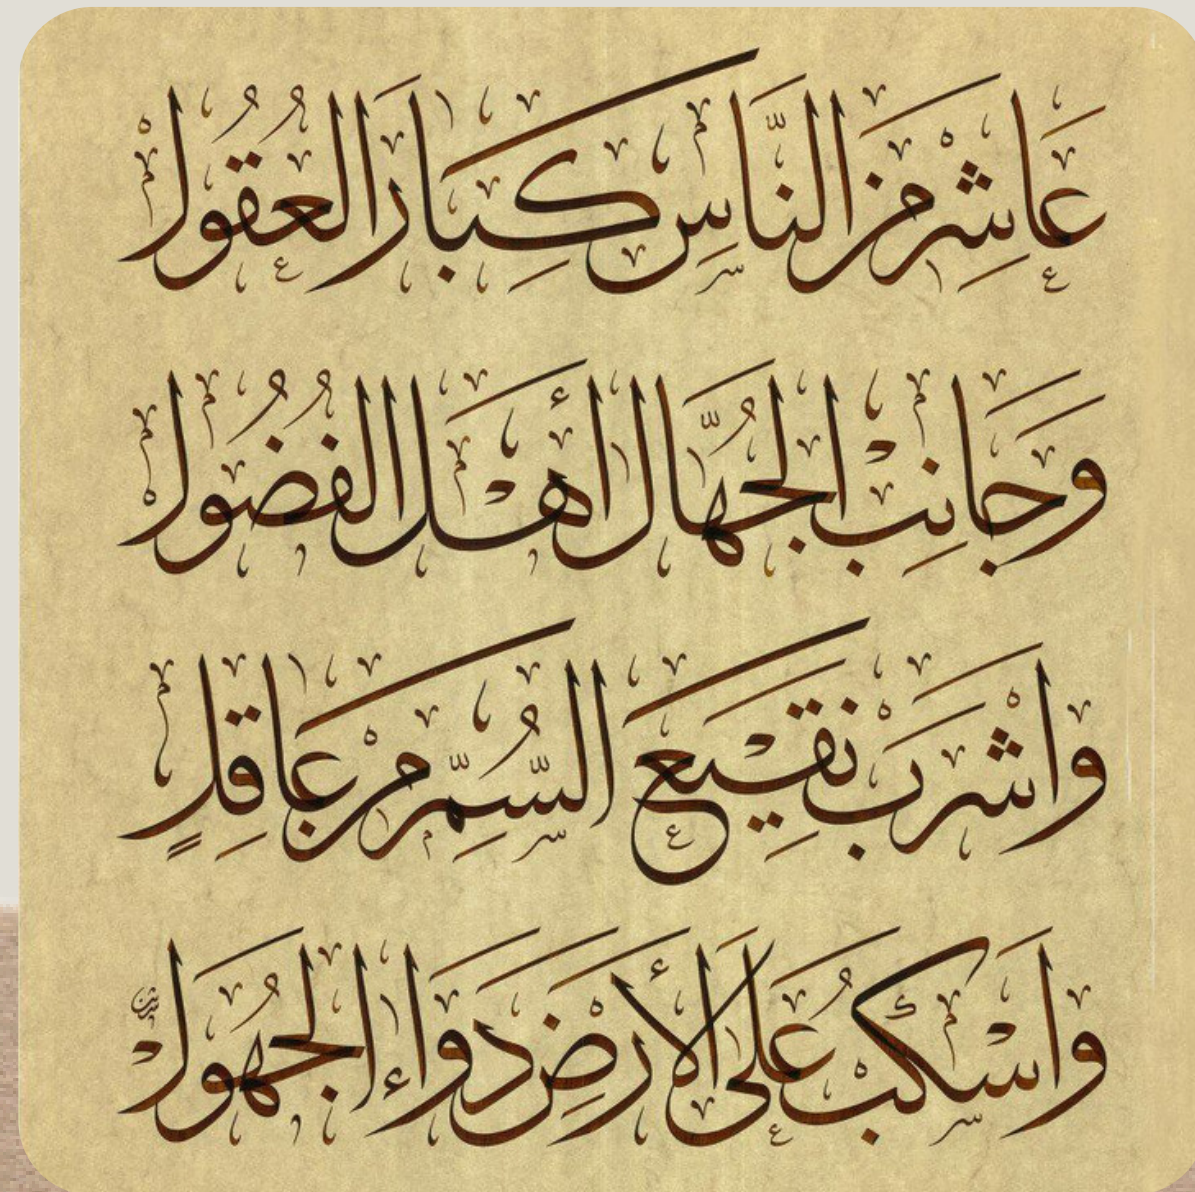 عَاشِرْ مِنَ النَّاسِ كِبَارَ العُقُولْ
وَجَانِبْ الجُهَّالَ أَهْلَ الفُضُولْ
وَاشْرَبْ نَقِيْعَ السُّمِّ مِنْ عَاقِلٍ
وَاسْكُبْ عَلَى الأَرْضِ دَوَاءَ الجَهُولْ